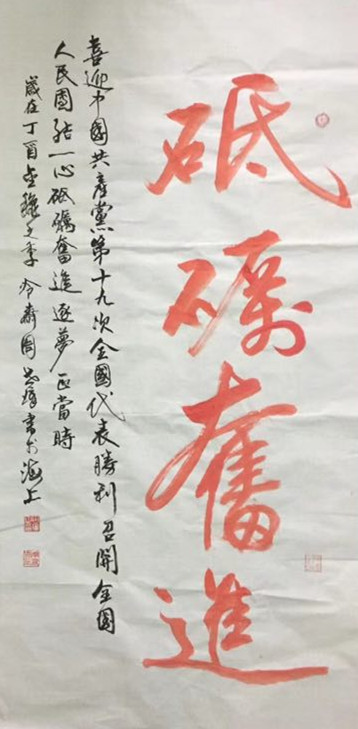 砥礪奮進
喜迎中國共產黨第十九次全國代表勝利召開全國
人民團結一心砥礪奮進逐夢正當時
歲在丁酉金雞之季 書於海上